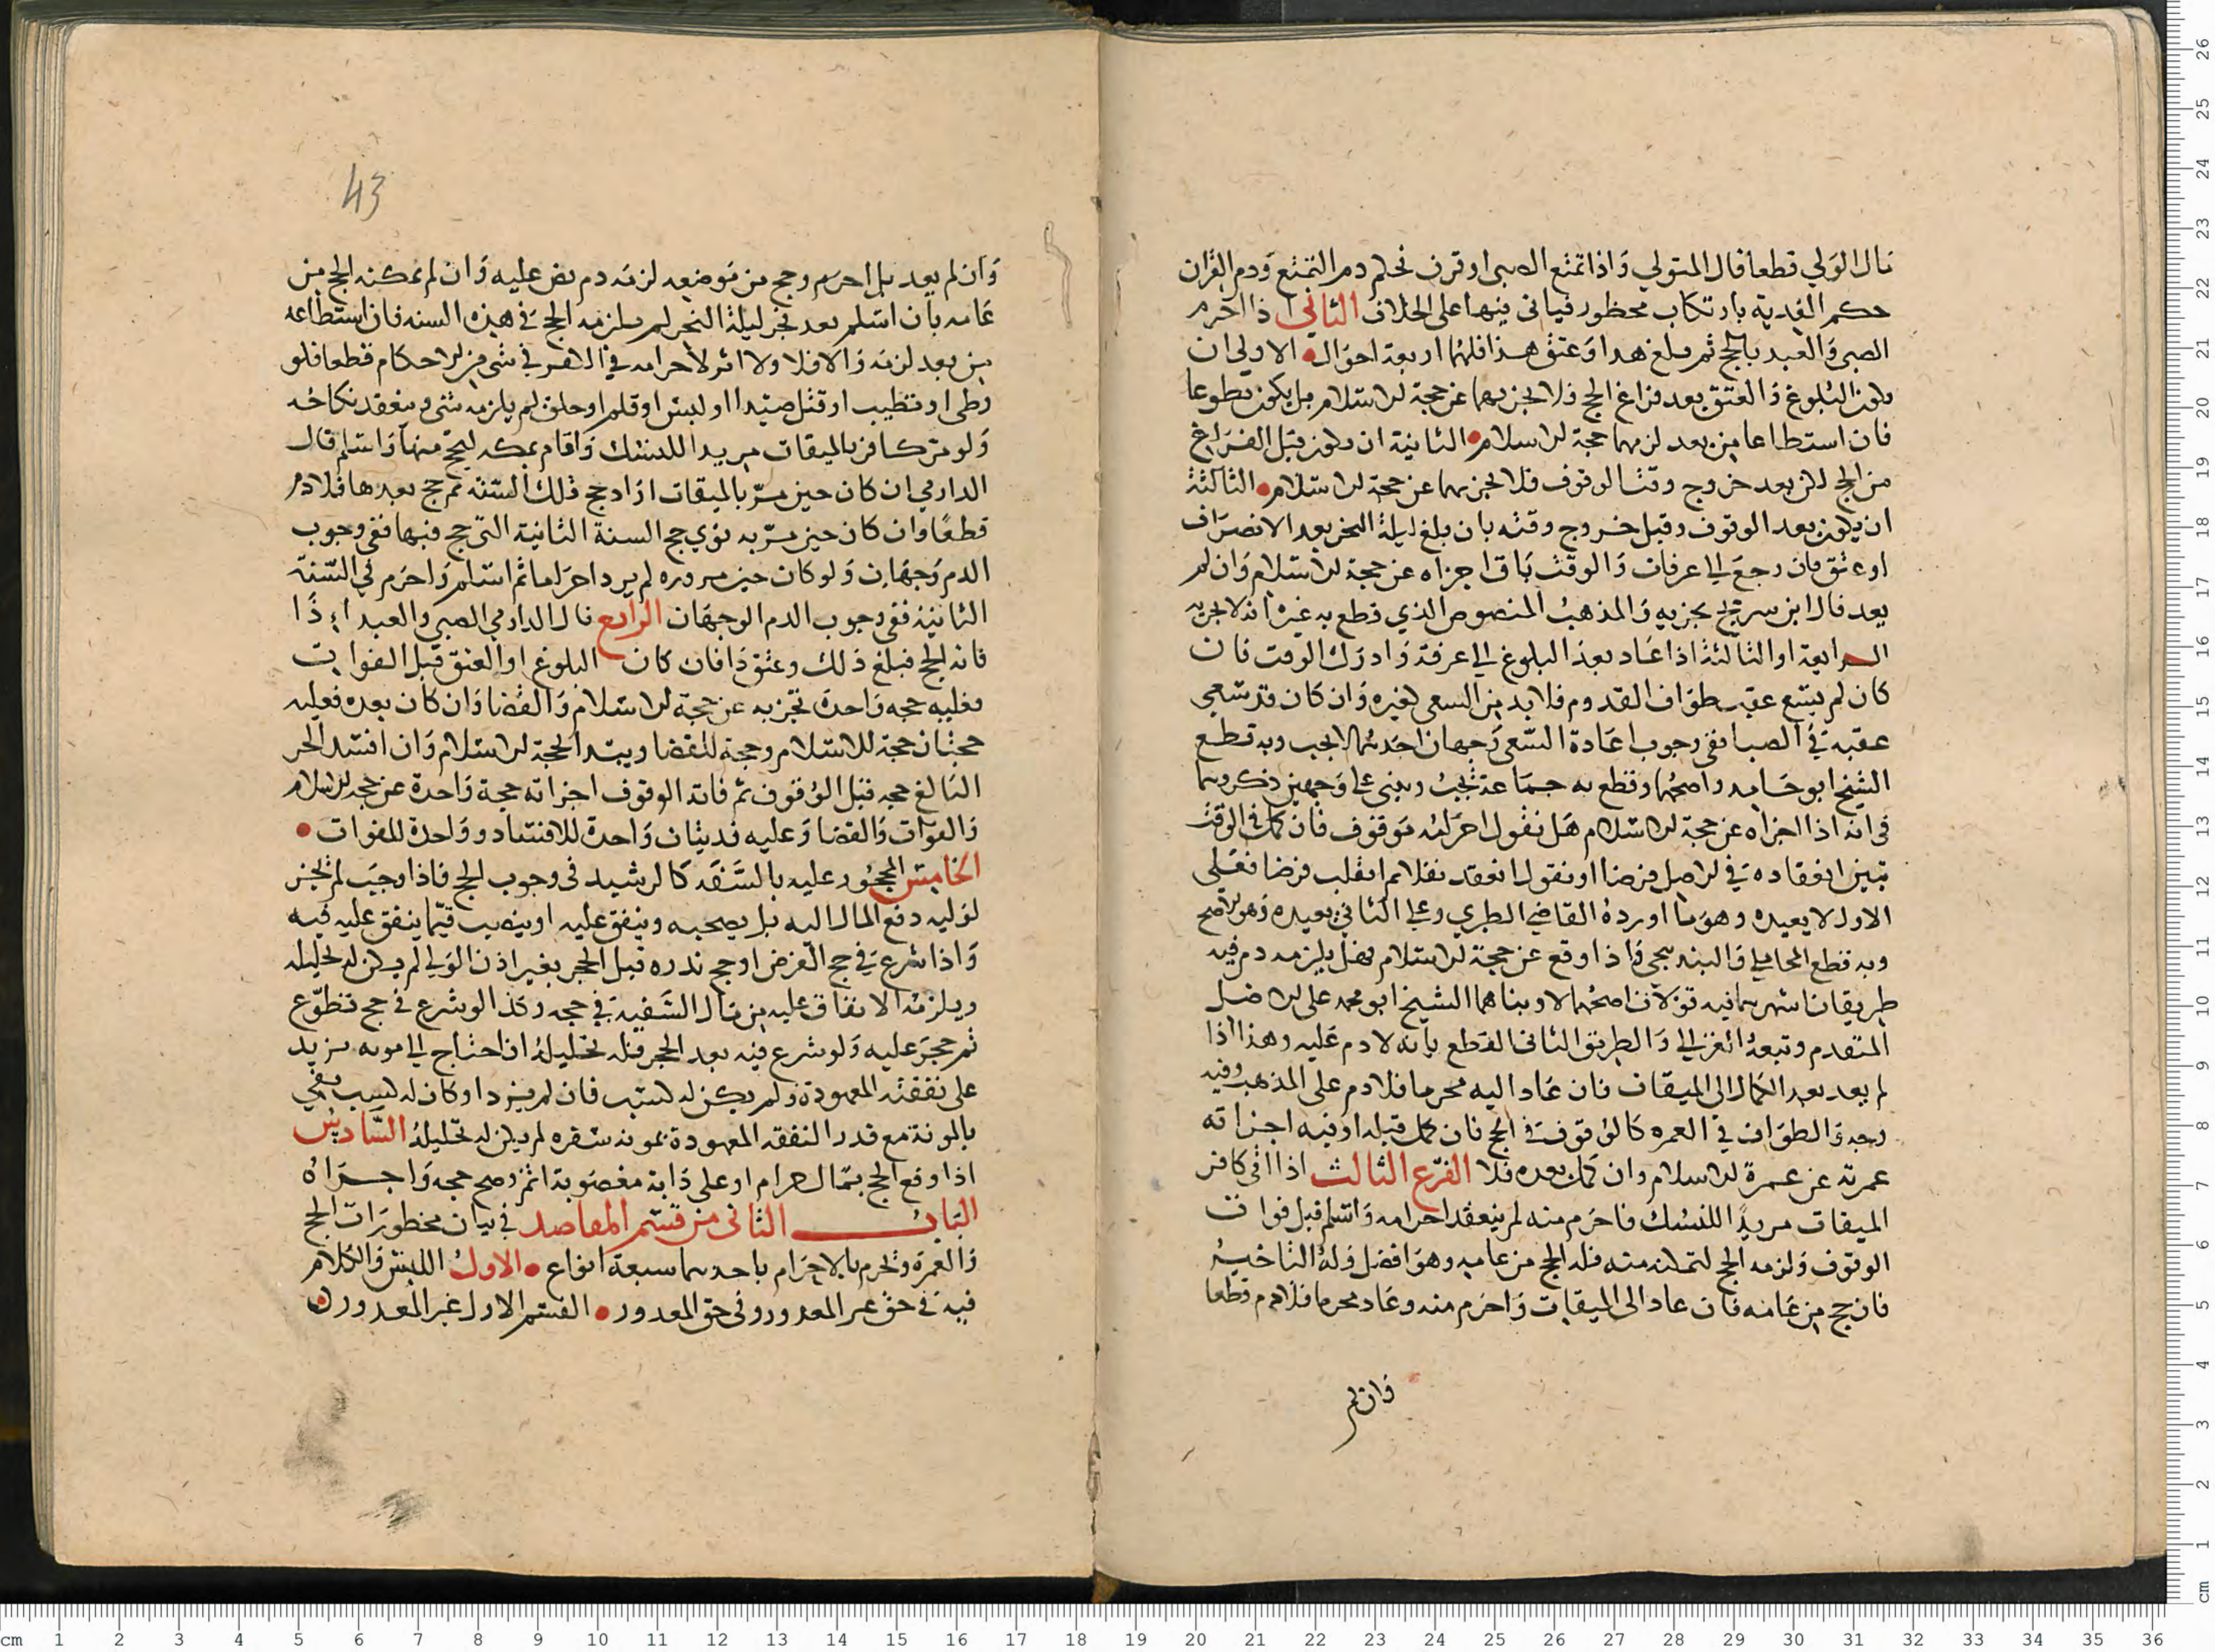 مال الولي قطعا قال المتولي واذا تمتع الصبى او قرن فحكم دم التمتع ودم القران
حكم الفدية بارتكاب محظور فياتى فيها على الخلاف الثانى اذا احرم
الصبى والعبد بالحج ثم بلغ هدا وعتق هذا فلهما اربعة احوال الاولى ان
يكون البلوغ والعتق بعد فراغ الحج فلا يجزيهما عن حجة الاسلام بل يكون تطوعا
فان استطاعا من بعد لزمهما حجة الاسلام الثانية ان يكون قبل الفراغ
من الحج لكن بعد خروج وقت الوقوف فلا يجزيهما عن حجة الاسلام الثالثة
ان يكون بعد الوقوف وقبل خروج وقته بان بلغ ليلة النحر بعد الانصراف
او عتق فان رجع الى عرفات والوقت باق اجزاه عن حجة الاسلام وان لم
يعد قال ابن سريج يجزيه والمذهب المنصوص الذي قطع به غيره انه لا يجزيه
الرابعة او الثالثة اذا عاد بعد البلوغ الى عرفة وادرك الوقت فان
كان لم يسع عقب طواف القدوم فلا بد من السعى لغيره وان كان قد سعى
عقبه في الصبا ففي وجوب اعادة السعى وجهان احدهما لا يجب وبه قطع
الشيخ ابو حامد واصحهما وقطع به جماعة تجب وبني على وجهين ذكروهما
فى انه اذا اجزاه عن حجة الاسلام هل نقول احرامه موقوف فان كمل فى الوقت
تبين انعقاده في الاصل فرضا او نقول انعقد نفلا ثم انقلب فرضا فعلى
الاول لا يعيده وهو ما اورده القاضي الطبري وعلى الثاني يعيده وهو الاصح
وبه قطع المحاملي والبندنيجي واذا وقع عن حجة الاسلام فهل يلزمه دم فيه
طريقان اشهرهما فيه قولان اصحهما لا وبناهما الشيخ ابو محمد على الاصل
المتقدم وتبعه الغزالي والطريق الثانى القطع بانه لا دم عليه وهذا اذا
لم يعد بعد الكمال الى الميقات فان عاد اليه محرما فلا دم على المذهب وفيه
وجه والطواف في العمره كالوقوف في الحج فان كمل قبله او فيه اجزاته
عمرته عن عمرة الاسلام وان كمل بعده فلا الفرع الثالث اذا اتى كافر
الميقات مريدا للنسك فاحرم منه لم ينعقد احرامه واسلم قبل فوات
الوقوف ولزمه الحج لتمكنه منه فله الحج من عامه وهو افضل وله التاخير
فان حج من عامه فان عاد الى الميقات واحرم منه وعاد محرما فلا دم قطعا
فان لم
43
وان لم يعد بل احرم وحج من موضعه لزمه دم نص عليه وان لم يمكنه الحج من
عامه بان اسلم بعد فجر ليلة النحر لم يلزمه الحج في هذه السنه فان استطاعه
من بعد لزمه والا فلا ولا اثر لاحرامه في الكفر في شى من الاحكام قطعا فلو
وطى او تطيب او قتل صيدا او لبس او قلم او حلق لم يلزمه شى وينعقد نكاحه
ولو مر كافر بالميقات مريدا للنسك واقام بمكه ليحج منها واسلم قال
الدارمي ان كان حين مر بالميقات اراد حج ذلك السنة ثم حج بعدها فلا دم
قطعا وان كان حين مر به نوى حج السنة الثانية التى حج فيها ففى وجوب
الدم وجهان ولو كان حين مروره لم يرد احراما ثم اسلم واحرم في السنة
الثانية ففى وجوب الدم الوجهان الرابع قال الدارمي الصبي والعبد اذا
فاته الحج فبلغ ذلك وعتق ذا فان كان البلوغ او العتق قبل الفوات
فعليه حجه واحدة تجزيه عن حجة الاسلام والقضا وان كان بعده فعليه
حجتان حجة للاسلام وحجة للقضا ويبدا بحجة الاسلام وان افسد الحر
البالغ حجه قبل الوقوف ثم فاته الوقوف اجزاته حجة واحدة عن حجه الاسلام
والفوات والقضا وعليه فديتان واحدة للافساد وواحدة للفوات
الخامس المحجور عليه بالسفه كالرشيد فى وجوب الحج فاذا وجب لم يجز
لوليه دفع المال اليه بل يصحبه وينفق عليه او ينصب قيما ينفق عليه فيه
واذا شرع في حج الفرض او حج نذره قبل الحجر بغير اذن الولي لم يكن له تحليله
ويلزمه الانفاق عليه من مال السفيه في حجه وكذا لو شرع في حج تطوع
ثم حجر عليه ولو شرع فيه بعد الحجر فله تحليله ان احتاج الى مونه تزيد
على نفقته المعهودة ولم يكن له كسب فان لم يزد او كان له كسب يفي
بالمونة مع قدر النفقه المعهودة بمونه سفره لم يكن له تحليله السادس
اذا وقع الحج بمال حرام او على دابة مغصوبة اثم وصح حجه واجزاه
الباب الثانى من قسم المقاصد في بيان محظورات الحج
والعمرة وتحرم بالاحرام باحدهما سبعة انواع الاول اللبس والكلام
فيه في حق غير المعدور وفى حق المعدور القسم الاول غير المعدور